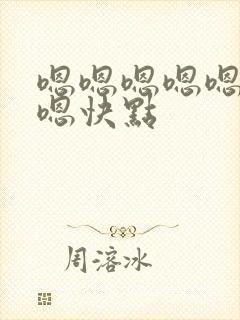 嗯嗯嗯嗯嗯
嗯快點
周溶冰